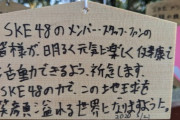 SKE48のメンバー・スタッフ・ファンの
皆様が、明るく元気に楽しく、健康で
活動できるよう、祈念します。
SKE48の力で、この地球を
笑顔溢れる世界に
2020